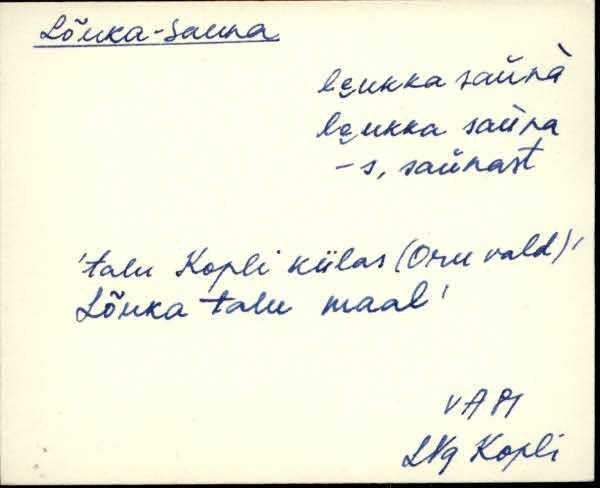 Lõuka-Sauna
lɐukka saũnà
lɐukka saũna
-s, saũnast
'talu Kopli külas (Oru vald)'
Lõuka talu maal'
VAPi
LNg Kopli